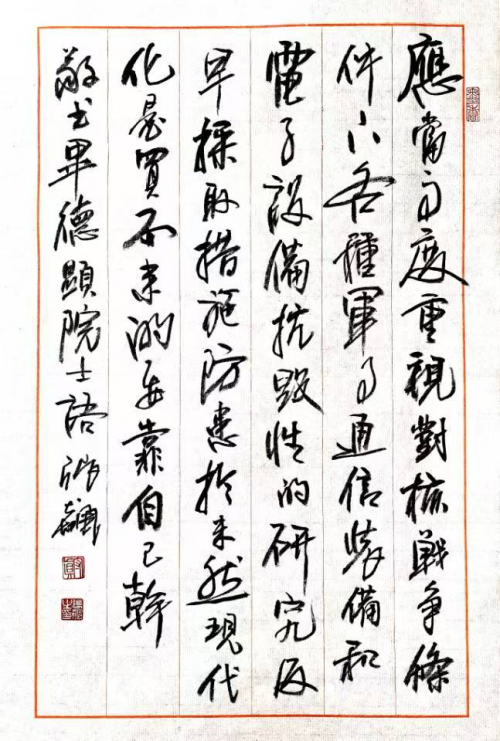 應當高度重視對核戰争條
件下各種軍事通信裝備和
電子設備抗毀性的研究及
早採取措施防患於未然現代
化是買不來的要靠自己幹
敬書畢德顯院士語